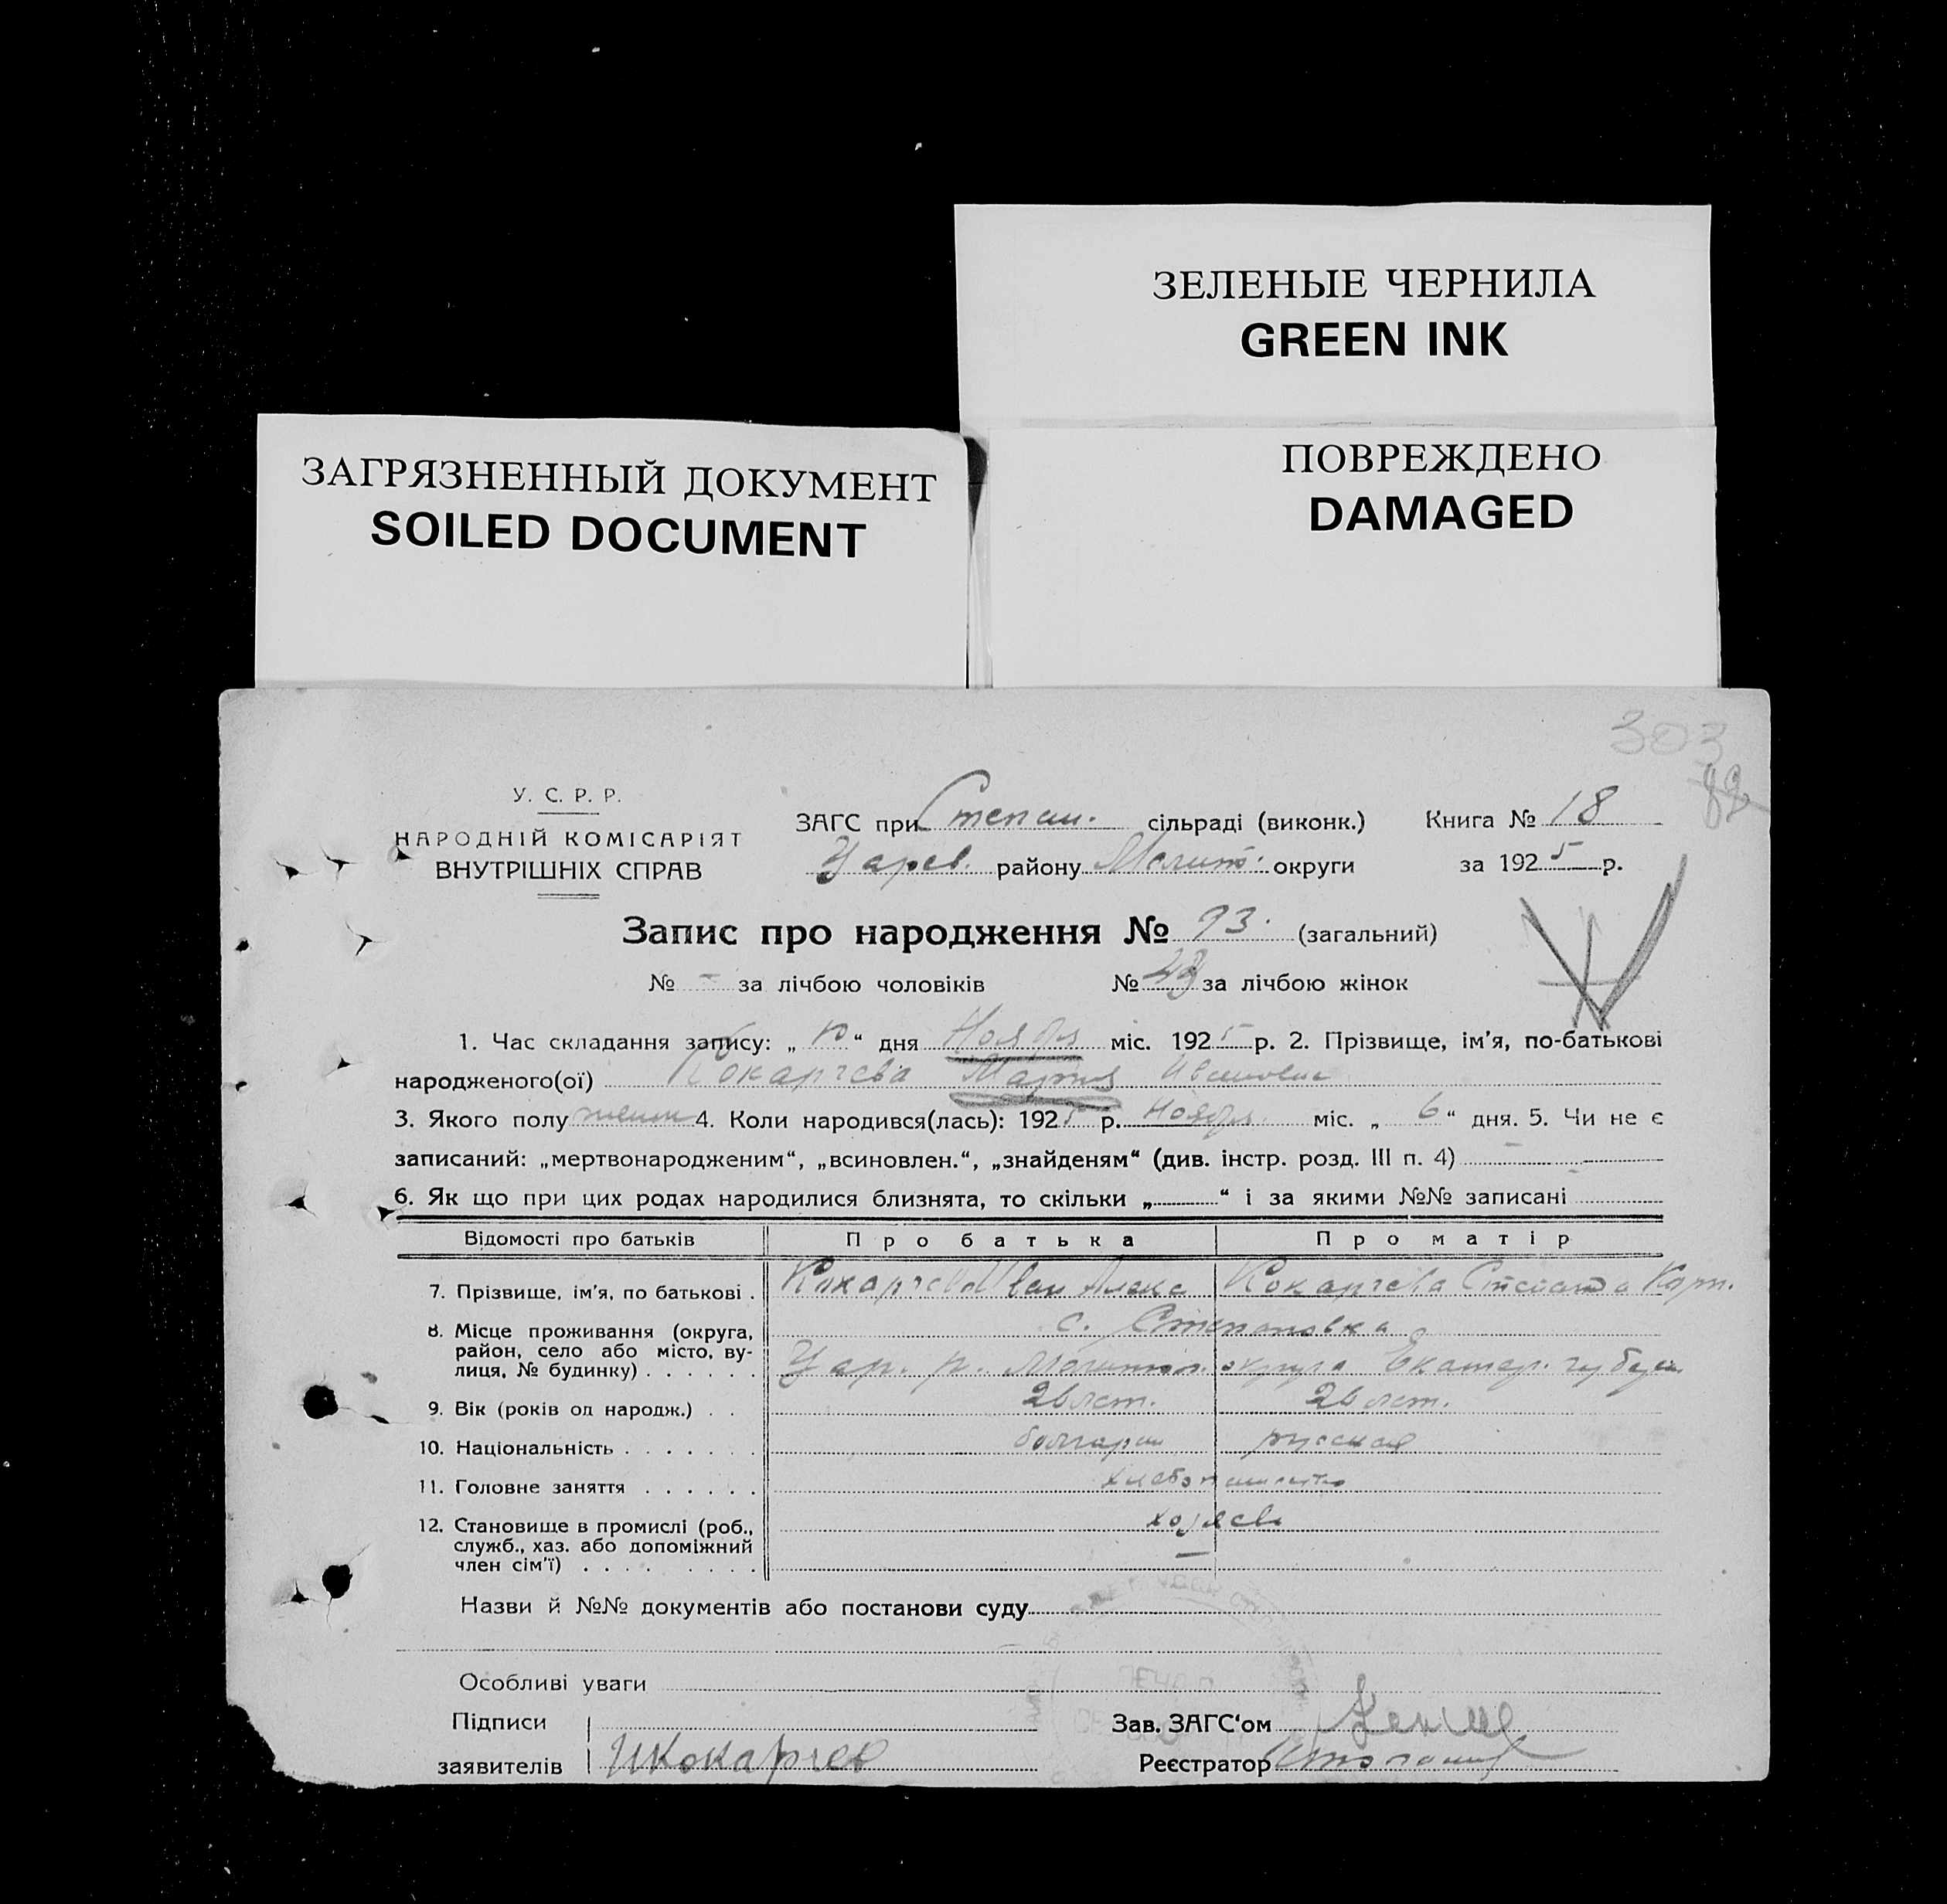 ЗЕЛЕНЫЕ ЧЕРНИЛА
GREEN INK
ЗАГРЯЗНЕННЫЙ ДОКУМЕНТ
SOILED DOCUMENT
ПОВРЕЖДЕНО
DAMAGED
303
У. С. Р. Р.
НАРОДНІЙ КОМІСАРІЯТ
ВНУТРІШНІХ СПРАВ
ЗАГС при Степан. сільраді (виконк.)
Царев. району Мелит. округи
Книга № 18
за 1925 р.
Запис про народження № 93. (загальний)
№ - за лічбою чоловіків № 43 за лічбою жінок
1. Час складання запису: „ 10 “ дня Ноября міс. 1925 р. 2. Прізвище, ім'я, по-батькові
народженого(ої) Кокарчева Мария Ивановна
3. Якого полу женск 4. Коли народився(лась): 1925 р. Ноября міс. „ 6 “ дня. 5. Чи не є
записаний: „мертвонародженим“, „всиновлен.“, „знайденям“ (див. інстр. розд. III п. 4) -
6. Як що при цих родах народилися близнята, то скільки „ “ і за якими №№ записані
Відомості про батьків Про батька Про матір
7. Прізвище, ім'я, по батькові . Кокарчев Иван Алекс Кокарчева
8. Місце проживання (округа, район, село або місто, вулиця, № будинку) . . . . . . с. Степановка
Цар. р. Мелитоп. округа Екатер. губерн
9. Вік (років од народж.) . . 26 лет. 26 лет.
10. Національність . . . . . . . болгарин русская
11. Головне заняття . . . . . . хлебопашество
12. Становище в промислі (роб., служб., хаз. або допоміжний член сім'ї) . . . . . . . . . хозяева
—
Назви й №№ документів або постанови суду
Особливі уваги
Підписи
заявителів ИКокарчев
Зав. ЗАГС'ом
Реєстратор